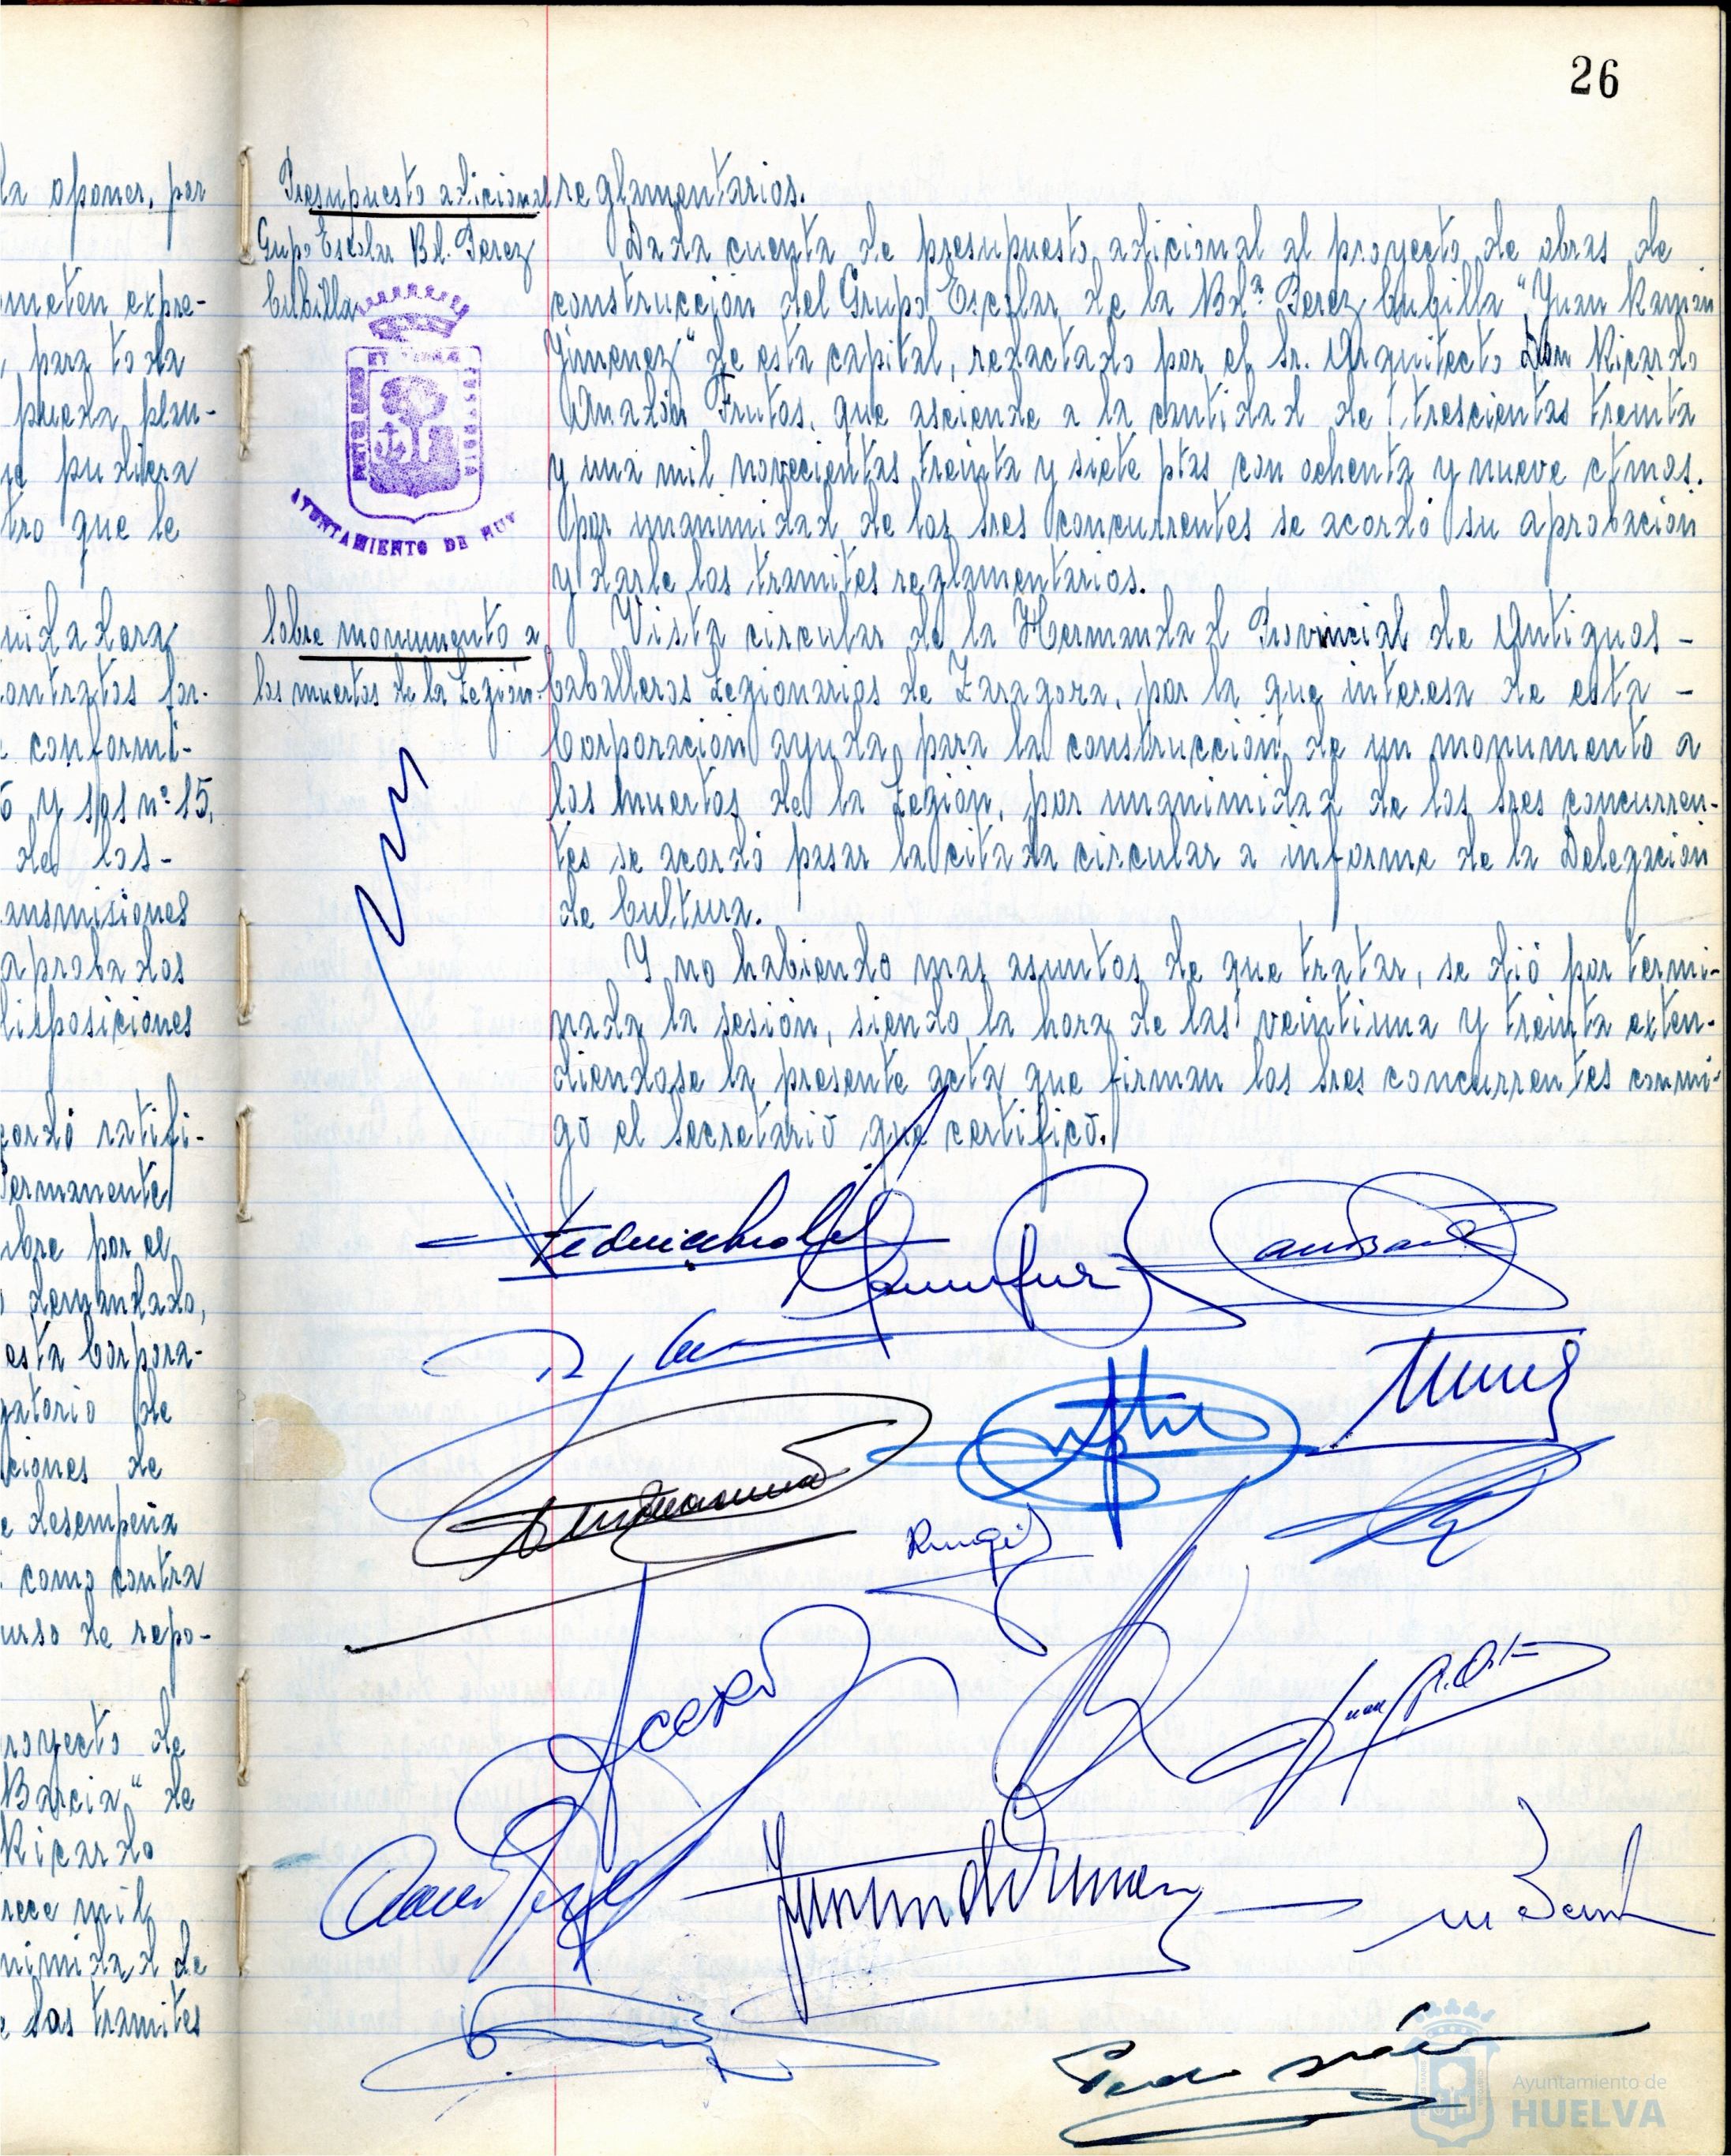 26
la oponer, por
meten expre-
, para toda
pueda plan-
pudiera
tro que le
midadora
ontratos for-
conformi-
y sgs nº 15,
de los-
ansmisiones
aprobados
disposiciones
cordó ratifi-
Permanente
mbre por el
demandado,
esta Corpora-
gatorio de
ciones de
e desempeña
como contra
urso de repo-
royecto de
Barcia" de
Ricardo
rece mil
nimidad de
e los tramites
Presupuesto adicional
Grupo Escolar Bd. Perez
Cubilla
AYUNTAMIENTO DE HUE
Sobre monumento a
los muertos de la Legión.
reglamentarios.
Dada cuenta de presupuesto adicional al proyecto de obras de
construcción del Grupo Escolar de la Bdª Perez Cubilla "Juan Ramón
Jimenez" de esta capital, redactado por el Sr. Arquitecto Don Ricardo
Anadón Frutos, que asciende a la cantidad de trescientas treinta
y una mil novecientas treinta y siete ptas con ochenta y nueve ctmos.
por unanimidad de los Sres concurrentes se acordó su aprobación
y darle los tramites reglamentarios.
Vista circular de la Hermandad Provincial de Antiguos -
Caballeros Legionarios de Zaragoza, por la que interesa de esta -
Corporación ayuda para la construcción de un monumento a
los muertos de la Legión, por unanimidad de los Sres concurren-
tes se acordó pasar la citada circular a informe de la Delegación
de Cultura.
Y no habiendo mas asuntos de que tratar, se dió por termi-
nada la sesión, siendo la hora de las veintiuna y treinta exten-
diendose la presente acta que firman los Sres concurrentes conmi-
go el Secretario que certifico.
Ayuntamiento de
HUELVA